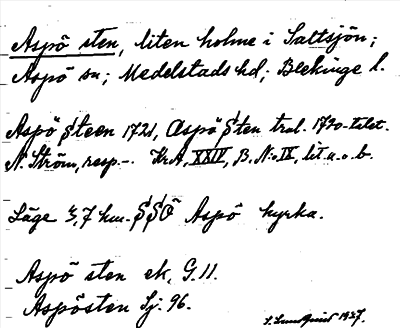 Aspö sten, liten holme i Saltsjön;
Aspö sn; Medelstads hd; Blekinge l.
Aspö Steen 1721, Æspö Sten tral. 1700-talet.
N. Ström, resp. -. Kr.A, XXIV, B, N:o IX, lit a. o. b.
Läge 3,7 km. SSÖ Aspö kyrka.
Aspö sten ek. G. 11.
Aspösten Sj. 96.
S. Lundquist 1927.